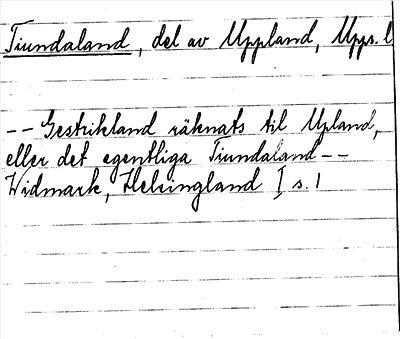 Tiundaland, del av Uppland, Upps. l
-- Gestrikland räknats til Upland,
eller det egentliga Tiundaland --
Widmark, Helsingland I s. 1